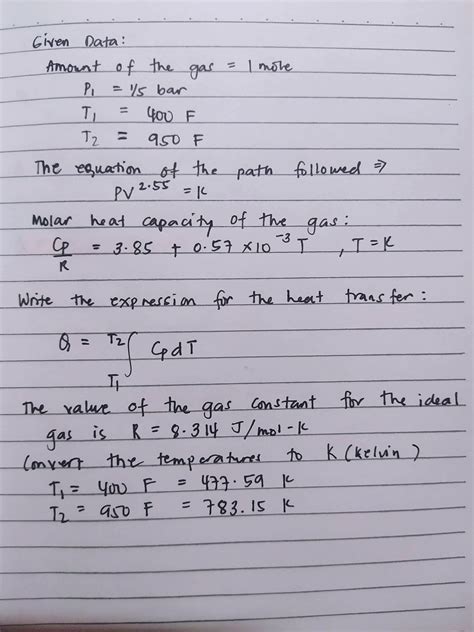 Given Data:
Amount of the gas = 1 mole
P₁ = 1/5 bar
T₁ = 400 F
T₂ = 950 F
The equation of the path followed ⇒
PV^2.55 = K
Molar heat capacity of the gas:
Cp/R = 3.85 + 0.57 × 10⁻³ T , T = K
Write the expression for the heat transfer:
Q = T₂∫T₁ Cp dT
The value of the gas constant for the ideal
gas is R = 8.314 J/mol-K
Convert the temperatures to K (kelvin)
T₁ = 400 F = 477.59 K
T₂ = 950 F = 783.15 K